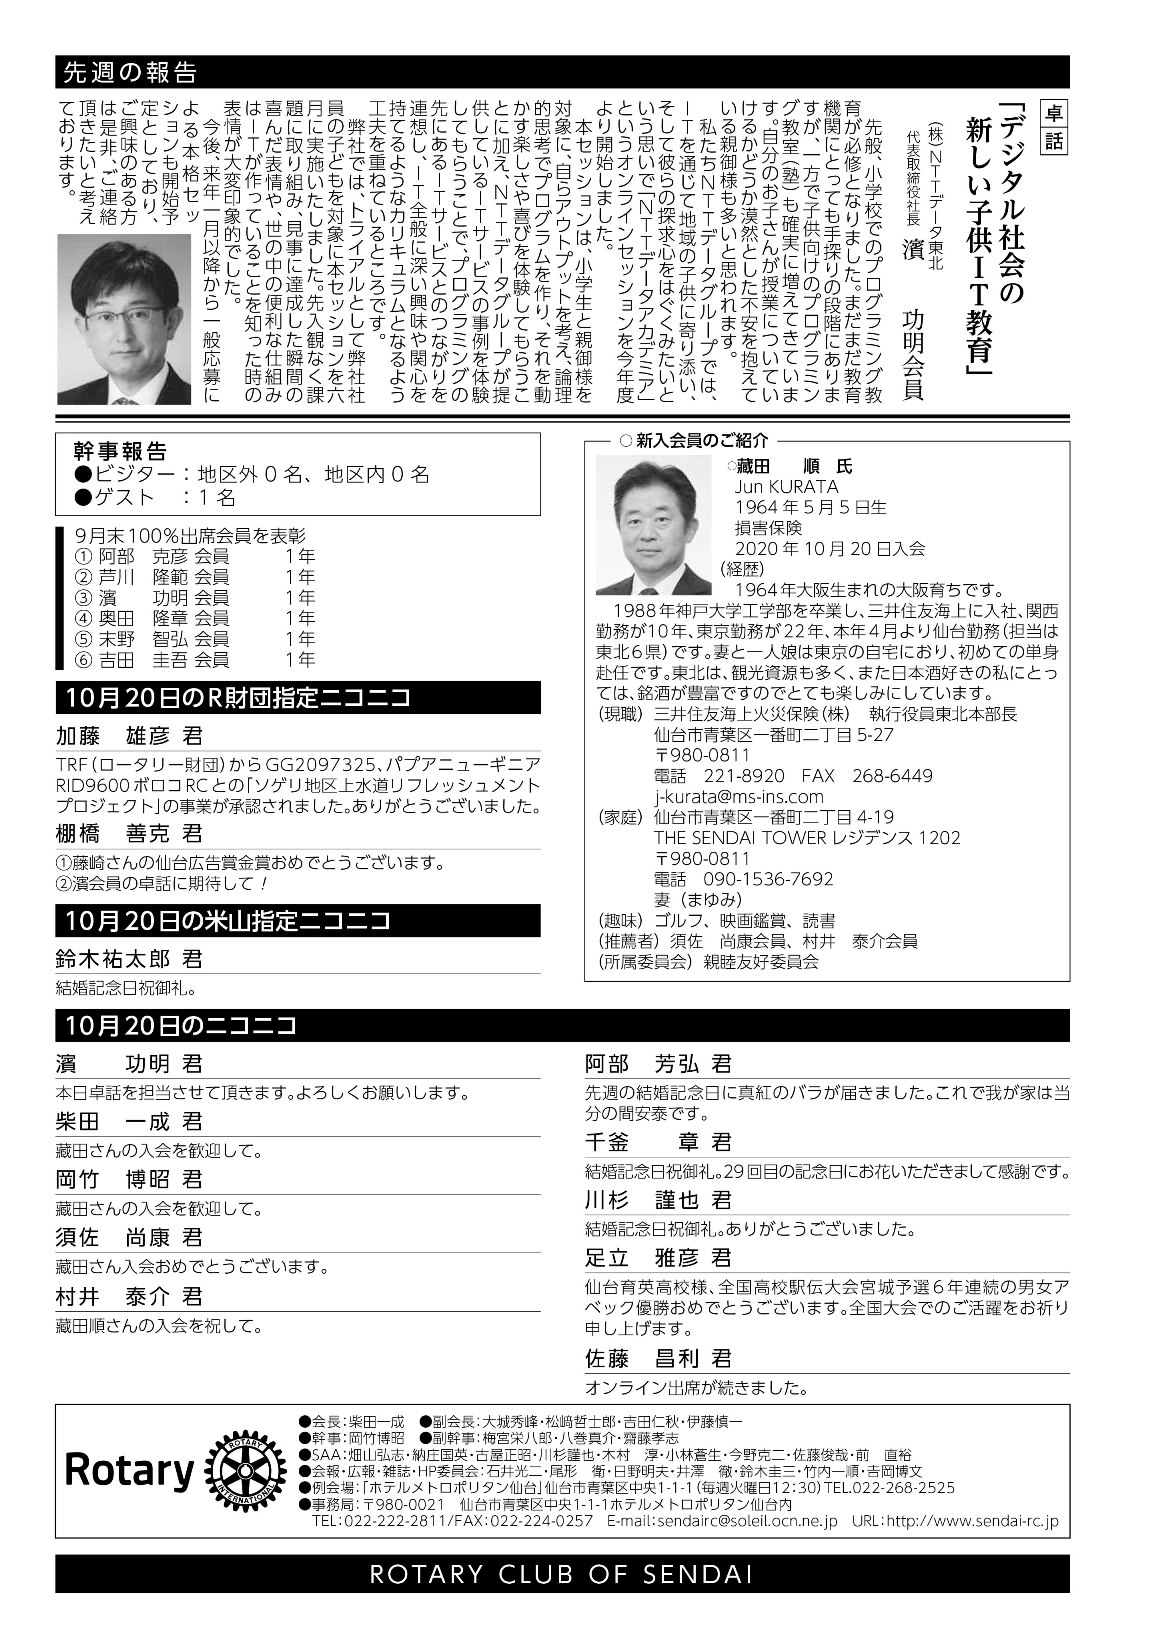 先週の報告
卓話
「デジタル社会の
新しい子供IT教育」
(株)NTTデータ東北
代表取締役社長 濱 功明会員
先般、小学校でのプログラミング教
育が必修となりました。まだまだ教育
機関にとっても手探りの段階にありま
すが、一方で子供向けのプログラミン
グ教室(塾)も確実に増えてきていま
す。自分のお子さんが授業についてい
けるかどうか漠然とした不安を抱えて
いる親御様も多いと思われます。
私たちNTTデータグループでは、
ITを通じて地域の子供に寄り添い、
そして彼らの探求心をはぐくみたいと
いう思いで「NTTデータアカデミア」
というオンラインセッションを今年度
より開始しました。
本セッションは、小学生と親御様を
対象に、自らアウトプットを考え、論理
的思考でプログラムを作り、それを動
かす楽しさや喜びを体験してもらうこ
とに加え、NTTデータグループが提
供しているITサービスの事例を体験
してもらうことで、プログラミングの
先にあるITサービスとのつながりを
連想し、IT全般に深い興味や関心を
持てるようなカリキュラムとなるよう
工夫を重ねているところです。
弊社では、トライアルとして弊社社
員の子どもを対象に本セッションを六
月に実施いたしました。先入観なく課
題に取り組み、見事に達成した瞬間の
喜んだ表情や、世の中の便利な仕組み
はITが作っていることを知った時の
表情が大変印象的でした。
今後、来年一月以降から一般応募に
よる本格セッ
ションも開始予
定としており、
ご興味のある方
は是非、ご連絡
頂きたいと考え
ております。
幹事報告
●ビジター：地区外 0 名、地区内 0 名
●ゲスト ：1 名
9月末100%出席会員を表彰
① 阿部 克彦 会員 1年
② 芦川 隆範 会員 1年
③ 濱 功明 会員 1年
④ 奥田 隆章 会員 1年
⑤ 末野 智弘 会員 1年
⑥ 吉田 圭吾 会員 1年
10月20日のR財団指定ニコニコ
加藤 雄彦 君
TRF(ロータリー財団)からGG2097325、パプアニューギニア
RID9600ボロコRCとの「ソゲリ地区上水道リフレッシュメント
プロジェクト」の事業が承認されました。ありがとうございました。
棚橋 善克 君
①藤崎さんの仙台広告賞金賞おめでとうございます。
②濱会員の卓話に期待して！
10月20日の米山指定ニコニコ
鈴木祐太郎 君
結婚記念日祝御礼。
○ 新入会員のご紹介
○藏田 順 氏
Jun KURATA
1964 年 5 月 5 日生
損害保険
2020 年 10 月 20 日入会
(経歴)
1964年大阪生まれの大阪育ちです。
1988年神戸大学工学部を卒業し、三井住友海上に入社、関西
勤務が10年、東京勤務が22年、本年4月より仙台勤務(担当は
東北6県)です。妻と一人娘は東京の自宅におり、初めての単身
赴任です。東北は、観光資源も多く、また日本酒好きの私にとっ
ては、銘酒が豊富ですのでとても楽しみにしています。
(現職) 三井住友海上火災保険(株) 執行役員東北本部長
仙台市青葉区一番町二丁目 5-27
〒980-0811
電話 221-8920 FAX 268-6449
j-kurata@ms-ins.com
(家庭) 仙台市青葉区一番町二丁目 4-19
THE SENDAI TOWER レジデンス 1202
〒980-0811
電話 090-1536-7692
妻 (まゆみ)
(趣味) ゴルフ、映画鑑賞、読書
(推薦者) 須佐 尚康会員、村井 泰介会員
(所属委員会) 親睦友好委員会
10月20日のニコニコ
濱 功明 君
本日卓話を担当させて頂きます。よろしくお願いします。
柴田 一成 君
藏田さんの入会を歓迎して。
岡竹 博昭 君
藏田さんの入会を歓迎して。
須佐 尚康 君
藏田さん入会おめでとうございます。
村井 泰介 君
藏田順さんの入会を祝して。
阿部 芳弘 君
先週の結婚記念日に真紅のバラが届きました。これで我が家は当
分の間安泰です。
千釜 章 君
結婚記念日祝御礼。29回目の記念日にお花いただきまして感謝です。
川杉 謹也 君
結婚記念日祝御礼。ありがとうございました。
足立 雅彦 君
仙台育英高校様、全国高校駅伝大会宮城予選6年連続の男女ア
ベック優勝おめでとうございます。全国大会でのご活躍をお祈り
申し上げます。
佐藤 昌利 君
オンライン出席が続きました。
Rotary
ROTARY INTERNATIONAL
●会長：柴田一成 ●副会長：大城秀峰・松﨑哲士郎・吉田仁秋・伊藤慎一
●幹事：岡竹博昭 ●副幹事：梅宮栄八郎・八巻真介・齋藤孝志
●SAA：畑山弘志・納庄国英・古屋正昭・川杉謹也・木村 淳・小林蒼生・今野克二・佐藤俊哉・前 直裕
●会報・広報・雑誌・HP委員会：石井光二・尾形 衛・日野明夫・井澤 徹・鈴木圭三・竹内一順・𠮷岡博文
●例会場：「ホテルメトロポリタン仙台」仙台市青葉区中央1-1-1(毎週火曜日12：30)TEL.022-268-2525
●事務局：〒980-0021 仙台市青葉区中央1-1-1ホテルメトロポリタン仙台内
TEL：022-222-2811/FAX：022-224-0257 E-mail：sendairc@soleil.ocn.ne.jp URL：http://www.sendai-rc.jp
ROTARY CLUB OF SENDAI